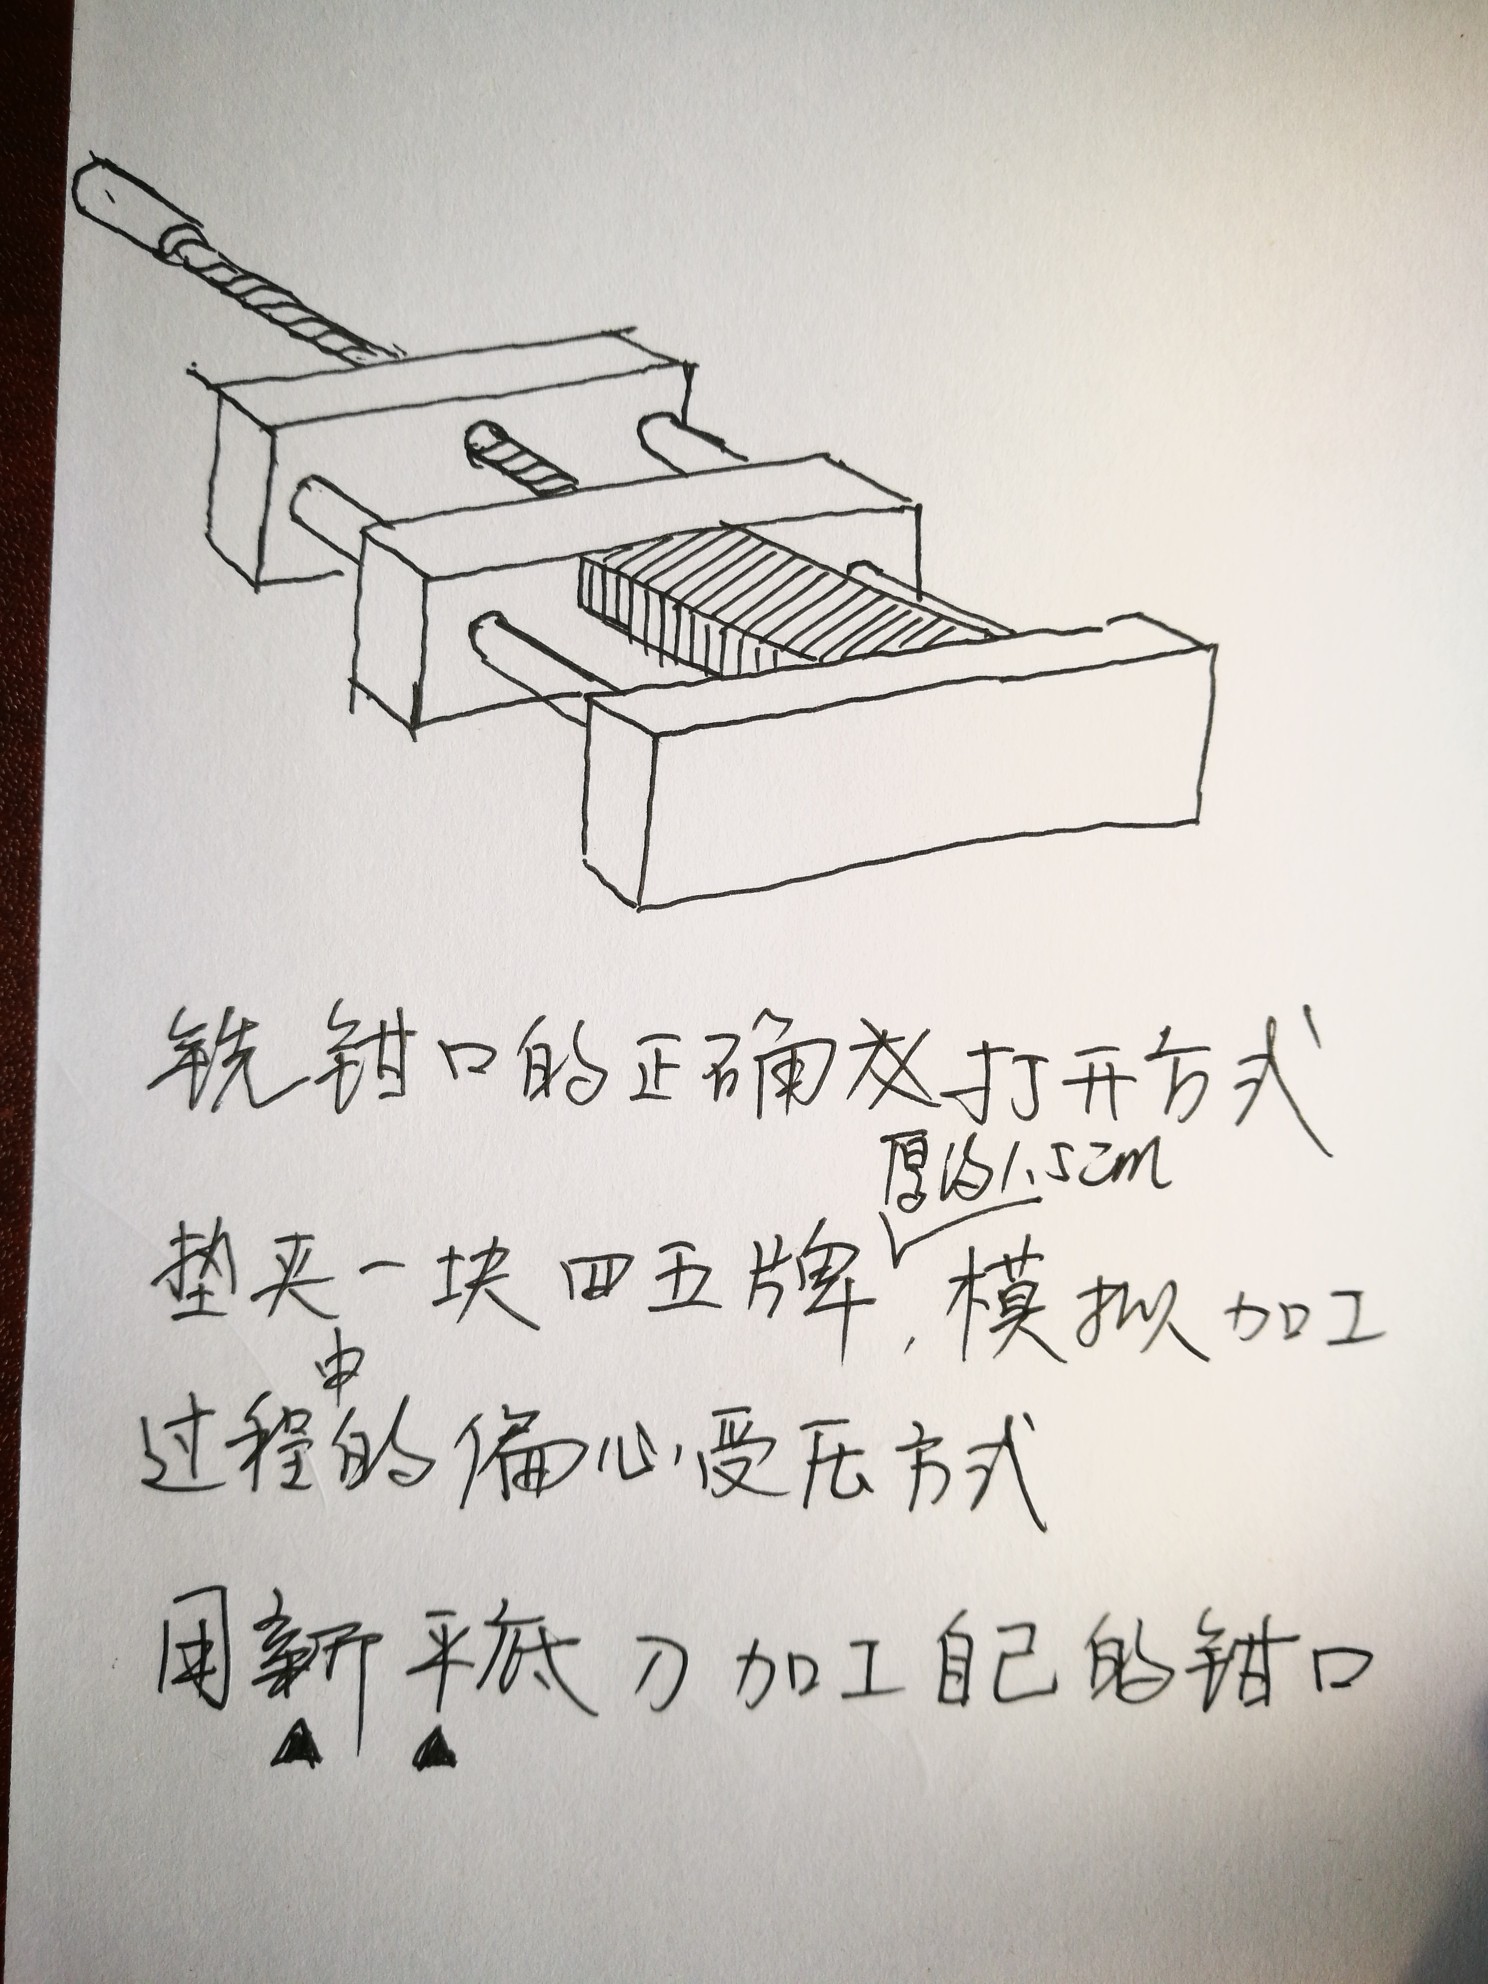 铣钳口的正确打开方式
厚约1.5cm
垫夹一块四五牌,模拟加工
过程中的偏心受压方式
用新平底刀加工自己的钳口